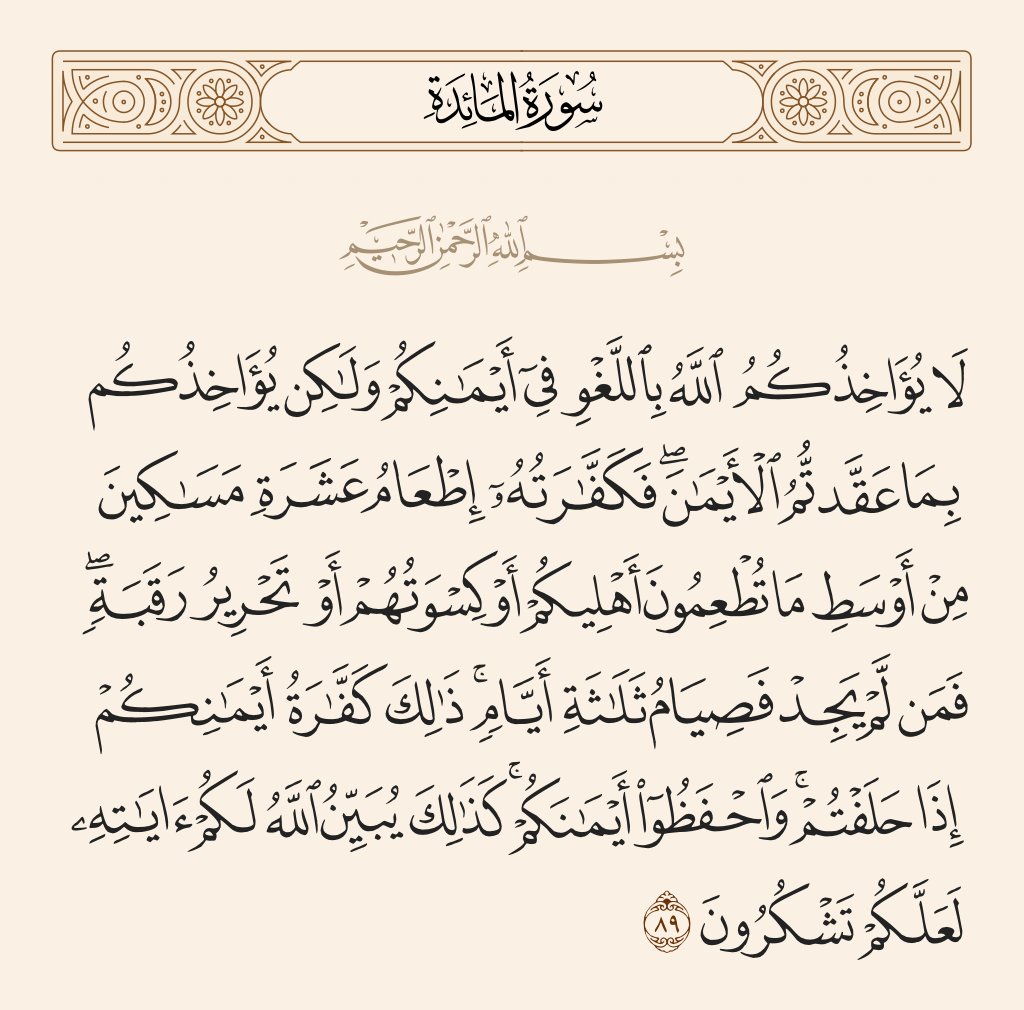 سُورَةُ المَائِدَةِ
بِسْمِ ٱللَّهِ ٱلرَّحْمَٰنِ ٱلرَّحِيمِ
لَا يُؤَاخِذُكُمُ ٱللَّهُ بِٱللَّغْوِ فِىٓ أَيْمَٰنِكُمْ وَلَٰكِن يُؤَاخِذُكُم
بِمَا عَقَّدتُّمُ ٱلْأَيْمَٰنَ ۖ فَكَفَّٰرَتُهُۥٓ إِطْعَامُ عَشَرَةِ مَسَٰكِينَ
مِنْ أَوْسَطِ مَا تُطْعِمُونَ أَهْلِيكُمْ أَوْ كِسْوَتُهُمْ أَوْ تَحْرِيرُ رَقَبَةٍ ۖ
فَمَن لَّمْ يَجِدْ فَصِيَامُ ثَلَٰثَةِ أَيَّامٍ ۚ ذَٰلِكَ كَفَّٰرَةُ أَيْمَٰنِكُمْ
إِذَا حَلَفْتُمْ ۚ وَٱحْفَظُوٓا۟ أَيْمَٰنَكُمْ ۚ كَذَٰلِكَ يُبَيِّنُ ٱللَّهُ لَكُمْ ءَايَٰتِهِۦ
لَعَلَّكُمْ تَشْكُرُونَ ٨٩